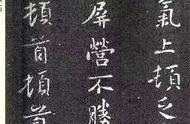 氣上頓乏
屏營不勝
頓首頓首